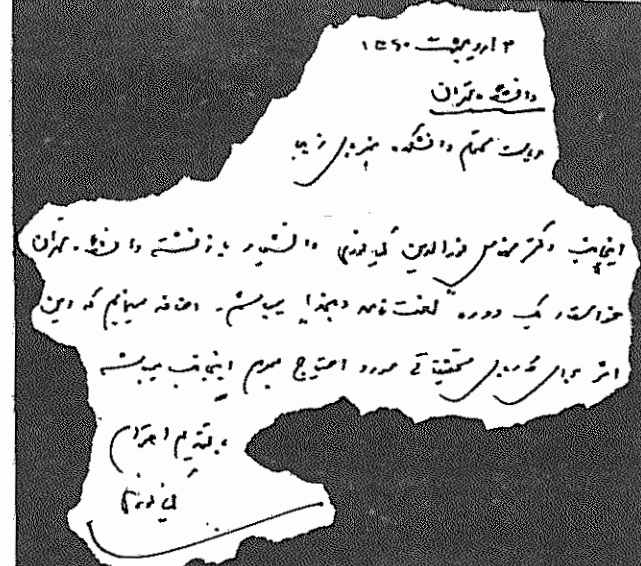 ۳ اردیبهشت ۱۳۶۰
دانشگاه تهران
ریاست محترم دانشکده هنرهای زیبا
اینجانب دکتر مهندس نورالدین کیانوری دانشیار بازنشسته دانشگاه تهران
خواستار یک دوره لغت نامه دهخدا میباشم. اضافه مینمایم که این
اثر برای کارهای تحقیقاتی مورد احتیاج مبرم اینجانب میباشد
با تقدیم احترام
کیانوری